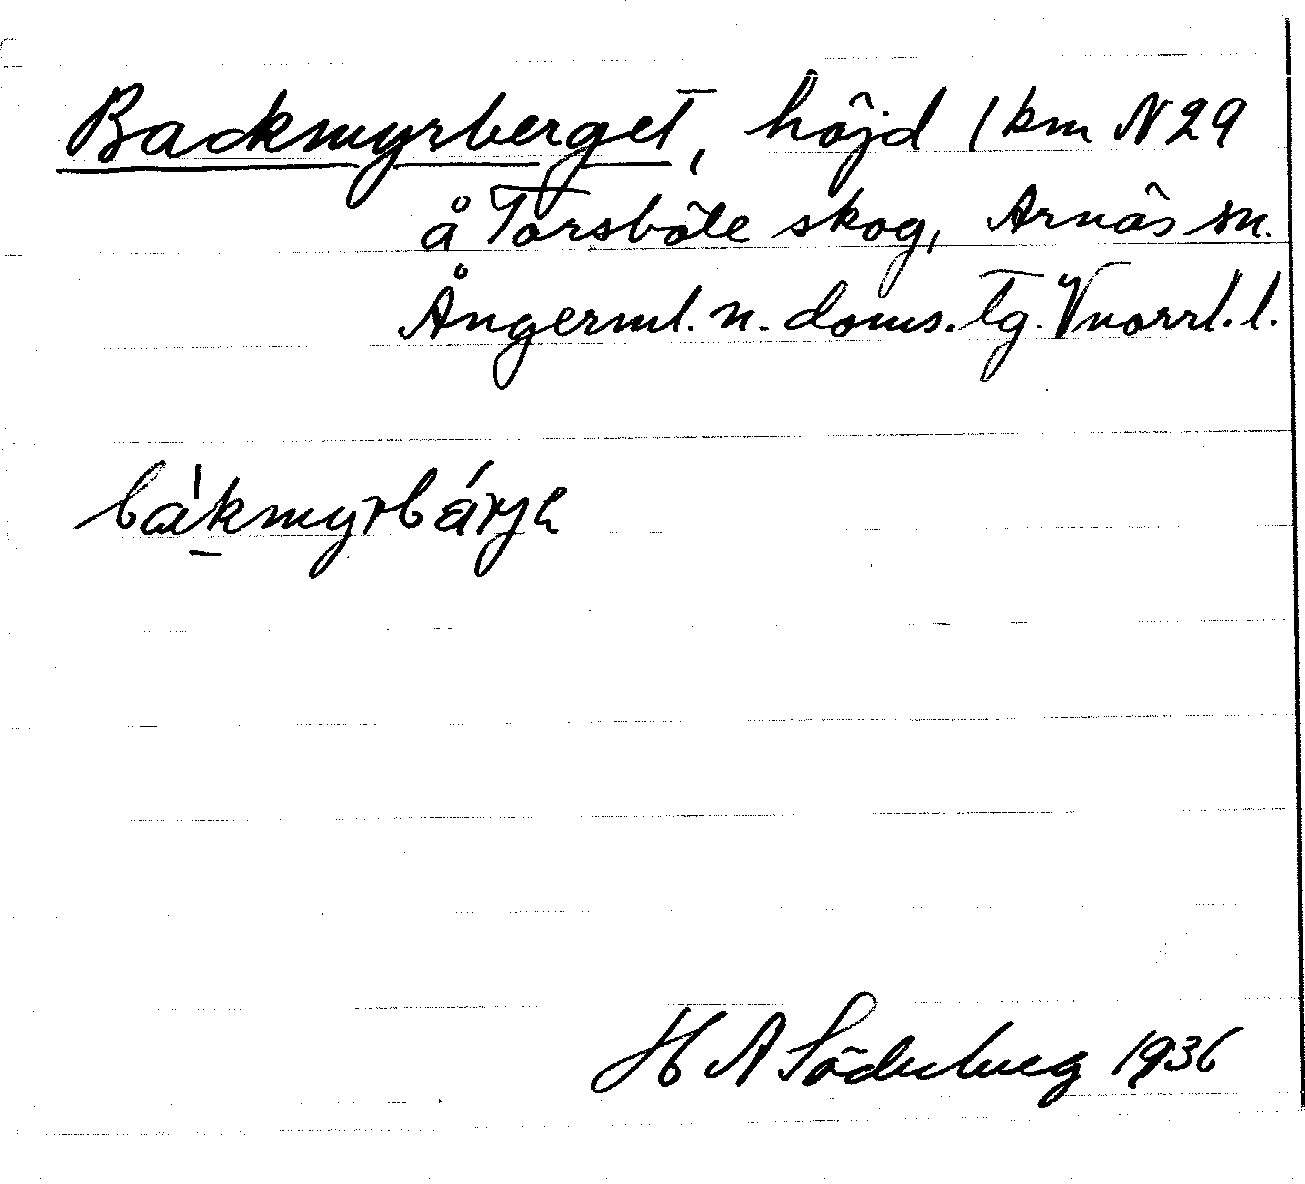 Backmyrberget, höjd 1 km N 29
å Torsböle skog, Arnäs sn.
Ångerml. n. doms. tg. Vnorrl. l.
bákmyrbáryɩ
H A Söderberg 1936